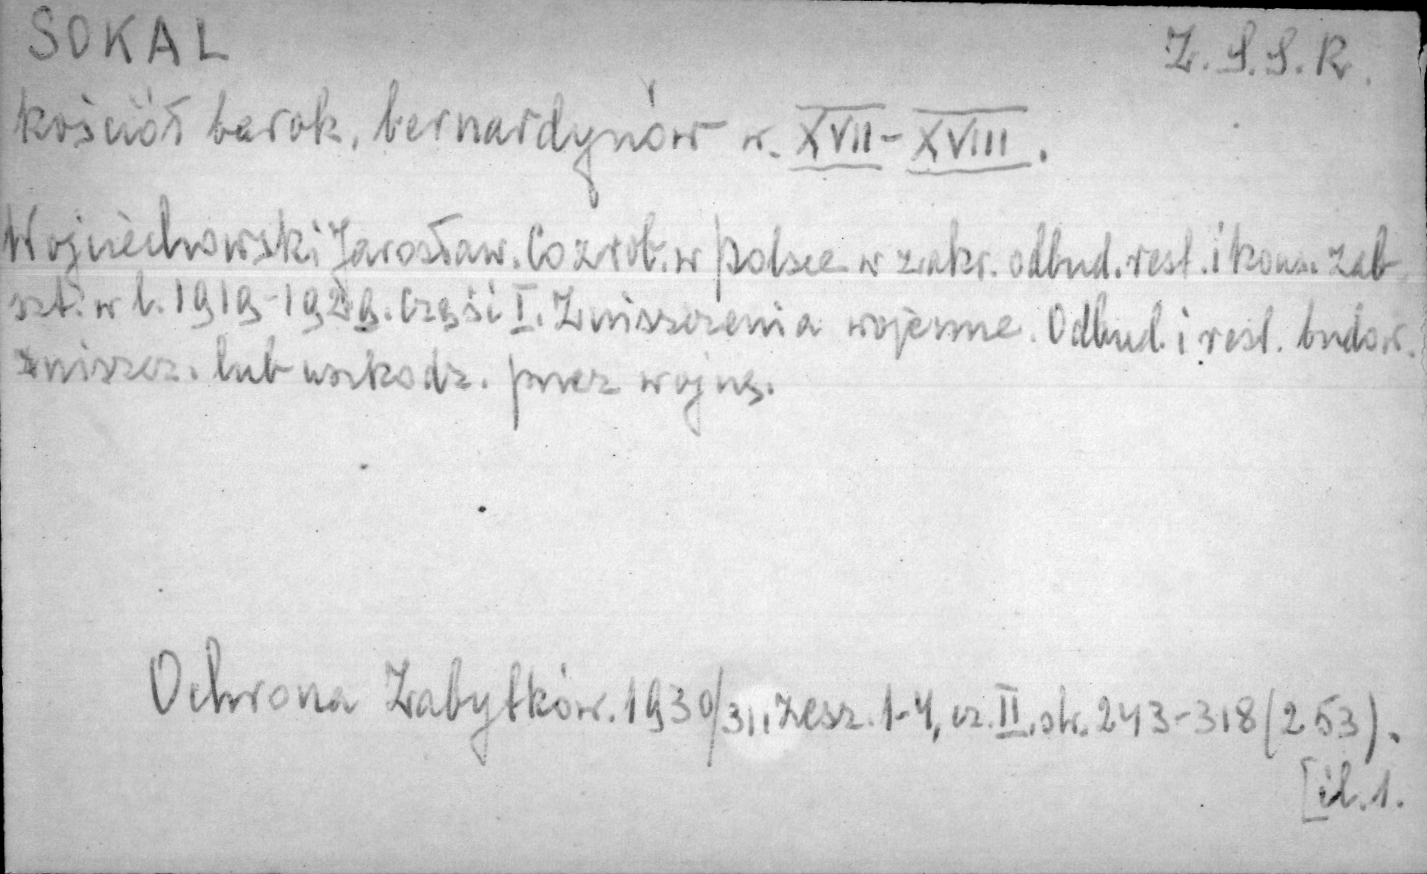 SOKAL Z.S.S.R.
kościół barok. bernardynów w. XVII-XVIII.
Wojciechowski Jarosław. Co zrob. w Polsce w zakr. odbud. rest. i kons. zab.
szt. w l. 1919-1929. Część I. Zniszczenia wojenne. Odbud. i rest. budow.
zniszcz. lub uszkodz. przez wojnę.
Ochrona Zabytków. 1930/31, zesz. 1-4, cz. II. str. 243-318 (253).
[il. 1.